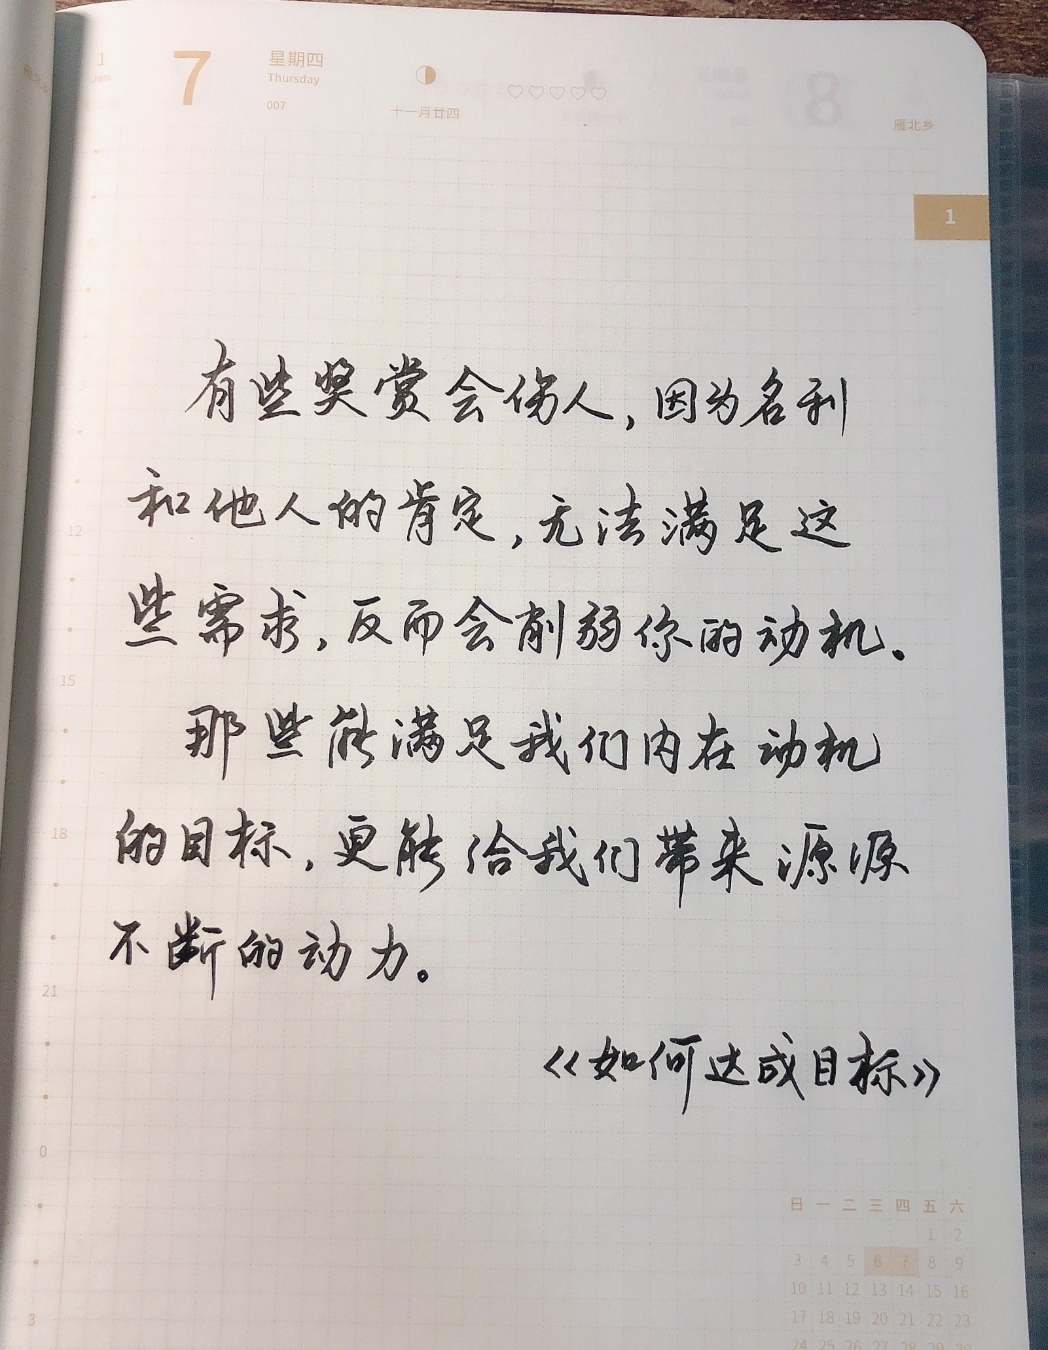 1
Jan
7
星期四
Thursday
007
十一月廿四
8
雁北乡
1
有些奖赏会伤人，因为名利
和他人的肯定，无法满足这
些需求，反而会削弱你的动机。
那些能满足我们内在动机
的目标，更能给我们带来源源
不断的动力。
《如何达成目标》
12
15
18
21
0
3
日 一 二 三 四 五 六
1 2
3 4 5 6 7 8 9
10 11 12 13 14 15 16
17 18 19 20 21 22 23
24 25 26 27 28 29 30